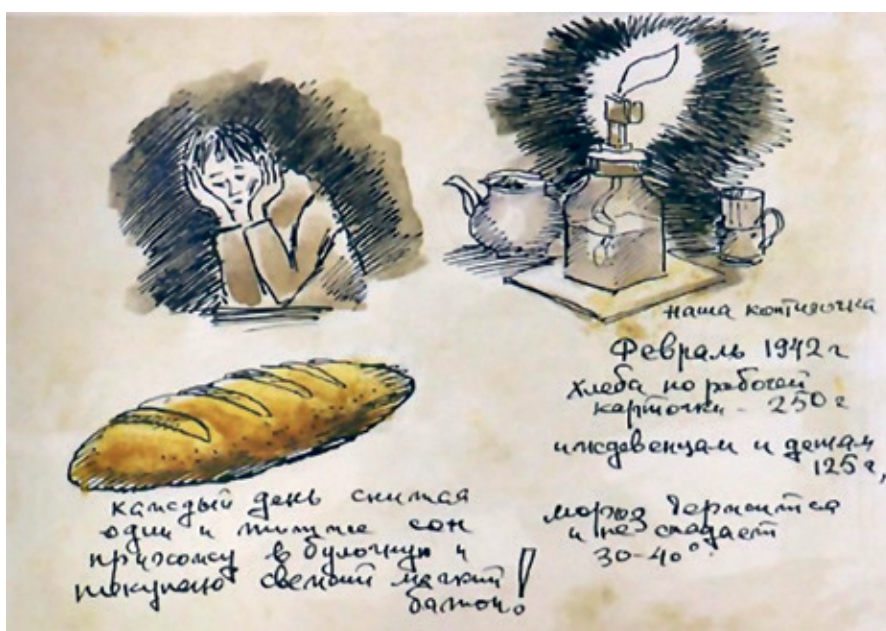 наша коптилочка
Февраль 1942 г
хлеба по рабочей
карточки - 250 г
иждевенцам и детям
125 г,
мороз держится
и не спадает
30-40°
каждый день снится
один и тотже сон
прихожу в булочную и
покупаю свежий мягкий
батон!